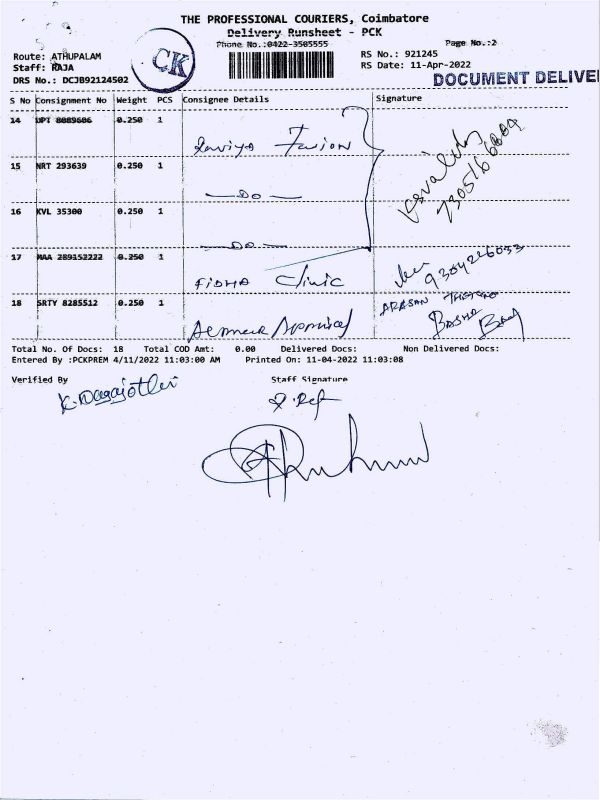 THE PROFESSIONAL COURIERS, Coimbatore
Delivery Runsheet - PCK
Phone No.:0422-3505555
Page No.:2
Route: ATHUPALAM
RS No.: 921245
Staff: RAJA
RS Date: 11-Apr-2022
DRS No.: DCJB92124502
CK
DOCUMENT DELIVE
S No Consignment No Weight PCS Consignee Details Signature
14 UPT 8089606 0.250 1
15 NRT 293639 0.250 1 -Do-
16 KVL 35300 0.250 1 -Do-
17 MAA 289152222 0.250 1 FIDHA Clinic
9304226033
18 SRTY 8285512 0.250 1
ARASAN
BASHA
Total No. Of Docs: 18 Total COD Amt: 0.00 Delivered Docs: Non Delivered Docs:
Entered By :PCKPREM 4/11/2022 11:03:00 AM Printed On: 11-04-2022 11:03:08
Verified By Staff Signature